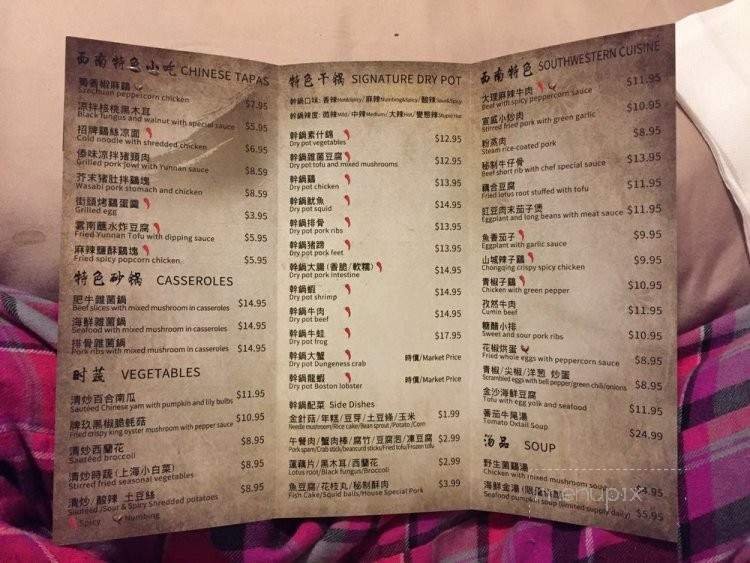 西南特色小吃 CHINESE TAPAS
蜀香椒麻鷄
Szechuan peppercorn chicken $7.95
凉拌核桃黑木耳
Black fungus and walnut with special sauce $5.95
招牌鷄絲凉面
Cold noodle with shredded chicken $6.95
傣味凉拌猪頸肉
Grilled pork jowl with Yunnan sauce $8.59
芥末猪肚拌鷄塊
Wasabi pork stomach and chicken $8.59
街頭烤鷄蛋
Grilled egg $3.95
雲南蘸水炸豆腐
Fried Yunnan Tofu with dipping sauce $5.95
麻辣鹽酥鷄塊
Fried spicy popcorn chicken $5.95
特色砂锅 CASSEROLES
肥牛雜菌鍋
Beef slices with mixed mushroom in casseroles $14.95
海鮮雜菌鍋
Seafood with mixed mushroom in casseroles $14.95
排骨雜菌鍋
Pork ribs with mixed mushroom in casseroles $14.95
时蔬 VEGETABLES
清炒百合南瓜
Sauteed Chinese yam with pumpkin and lily bulbs $11.95
牌玖黑椒脆蚝菇
Fried crispy king oyster mushroom with pepper sauce $10.95
清炒西蘭花
Sauteed broccoli $8.95
清炒時蔬(上海小白菜)
Stirred fried seasonal vegetables $8.95
清炒/酸辣 土豆絲
Sauteed /Sour & Spicy Shredded potatoes $8.95
Spicy Numbing
特色干锅 SIGNATURE DRY POT
幹鍋口味: 香辣Hot&Spicy/ 麻辣Numbing&Spicy/ 酸辣Sour&Spicy
幹鍋辣度: 微辣Mild/ 中辣Medium/ 大辣Hot/ 變態辣Stupid Hot
幹鍋素什錦
Dry pot vegetables $12.95
幹鍋雜菌豆腐
Dry pot tofu and mixed mushrooms $12.95
幹鍋鷄
Dry pot chicken $13.95
幹鍋魷魚
Dry pot squid $14.95
幹鍋排骨
Dry pot pork ribs $13.95
幹鍋猪蹄
Dry pot pork feet $13.95
幹鍋大腸(香脆/軟糯)
Dry pot pork intestine $14.95
幹鍋蝦
Dry pot shrimp $14.95
幹鍋牛肉
Dry pot beef $14.95
幹鍋牛蛙
Dry pot frog $17.95
幹鍋大蟹
Dry pot Dungeness crab 時價/Market Price
幹鍋龍蝦
Dry pot Boston lobster 時價/Market Price
幹鍋配菜 Side Dishes
金針菇/年糕/豆芽/土豆條/玉米 $1.99
Needle mushroom/Rice cake/Bean sprout/Potato/Corn
午餐肉/蟹肉棒/腐竹/豆腐泡/凍豆腐 $2.99
Pork spam/Crab stick/beancurd sticks/Fried tofu/Frozen tofu
蓮藕片/黑木耳/西蘭花 $2.99
Lotus root/Black fungus/Broccoli
魚豆腐/花枝丸/秘制酥肉 $3.99
Fish Cake/Squid balls/House Special Pork
西南特色 SOUTHWESTERN CUISINE
大理麻辣牛肉
Beef with spicy peppercorn sauce $11.95
宣威小炒肉
Stirred fried pork with green garlic $10.95
粉蒸肉
Steam rice-coated pork $8.95
秘制牛仔骨
Beef short rib with chef special sauce $13.95
藕合豆腐
Fried lotus root stuffed with tofu $11.95
豇豆肉末茄子煲
Eggplant and long beans with meat sauce $11.95
魚香茄子
Eggplant with garlic sauce $9.95
山城辣子鷄
Chongqing crispy spicy chicken $9.95
青椒子鷄
Chicken with green pepper $10.95
孜然牛肉
Cumin beef $11.95
糖醋小排
Sweet and sour pork ribs $10.95
花椒烘蛋
Fried whole eggs with peppercorn sauce $8.95
青椒/尖椒/洋葱 炒蛋
Scrambled eggs with bell pepper/green chili/onions $8.95
金沙海鮮豆腐
Tofu with egg yolk and seafood $11.95
蕃茄牛尾湯
Tomato Oxtail Soup $24.99
汤品 SOUP
野生菌鷄湯
Chicken with mixed mushroom soup $4.95
海鮮金湯
Seafood pumpkin soup (limited supply daily) $5.95
menupix